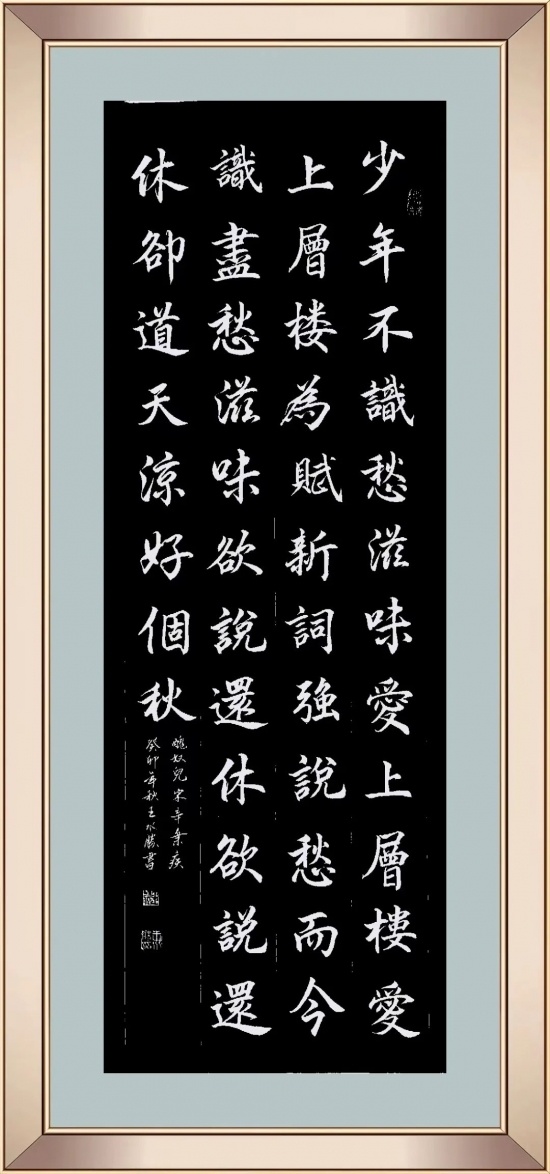 少年不識愁滋味愛上層樓愛
上層楼為賦新詞強說愁而今
識盡愁滋味欲說還休欲說還
休卻道天涼好個秋
醜奴兒宋辛棄疾
癸卯年秋王水勝書